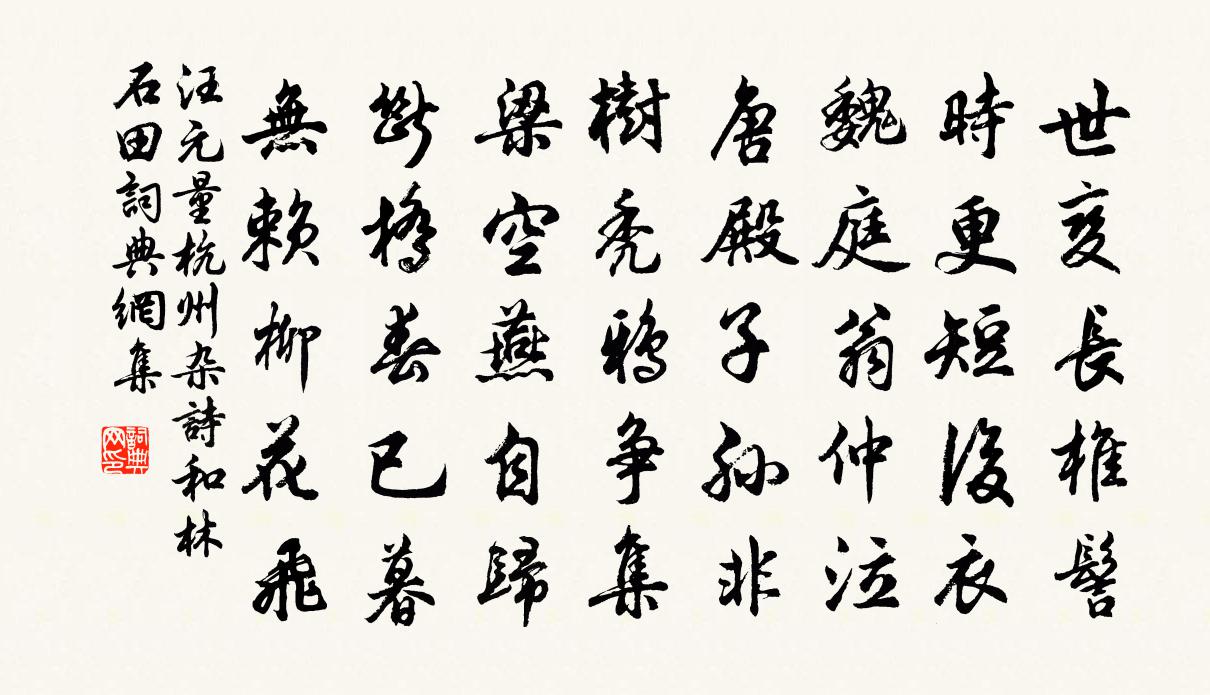 世变長椎髻
時更短後衣
魏庭翁仲泣
唐殿子孙非
樹禿鴉争集
梁空燕自歸
斷橋春已暮
無賴柳花飛
汪元量杭州杂詩和林
石田詞典網集
詞典网印